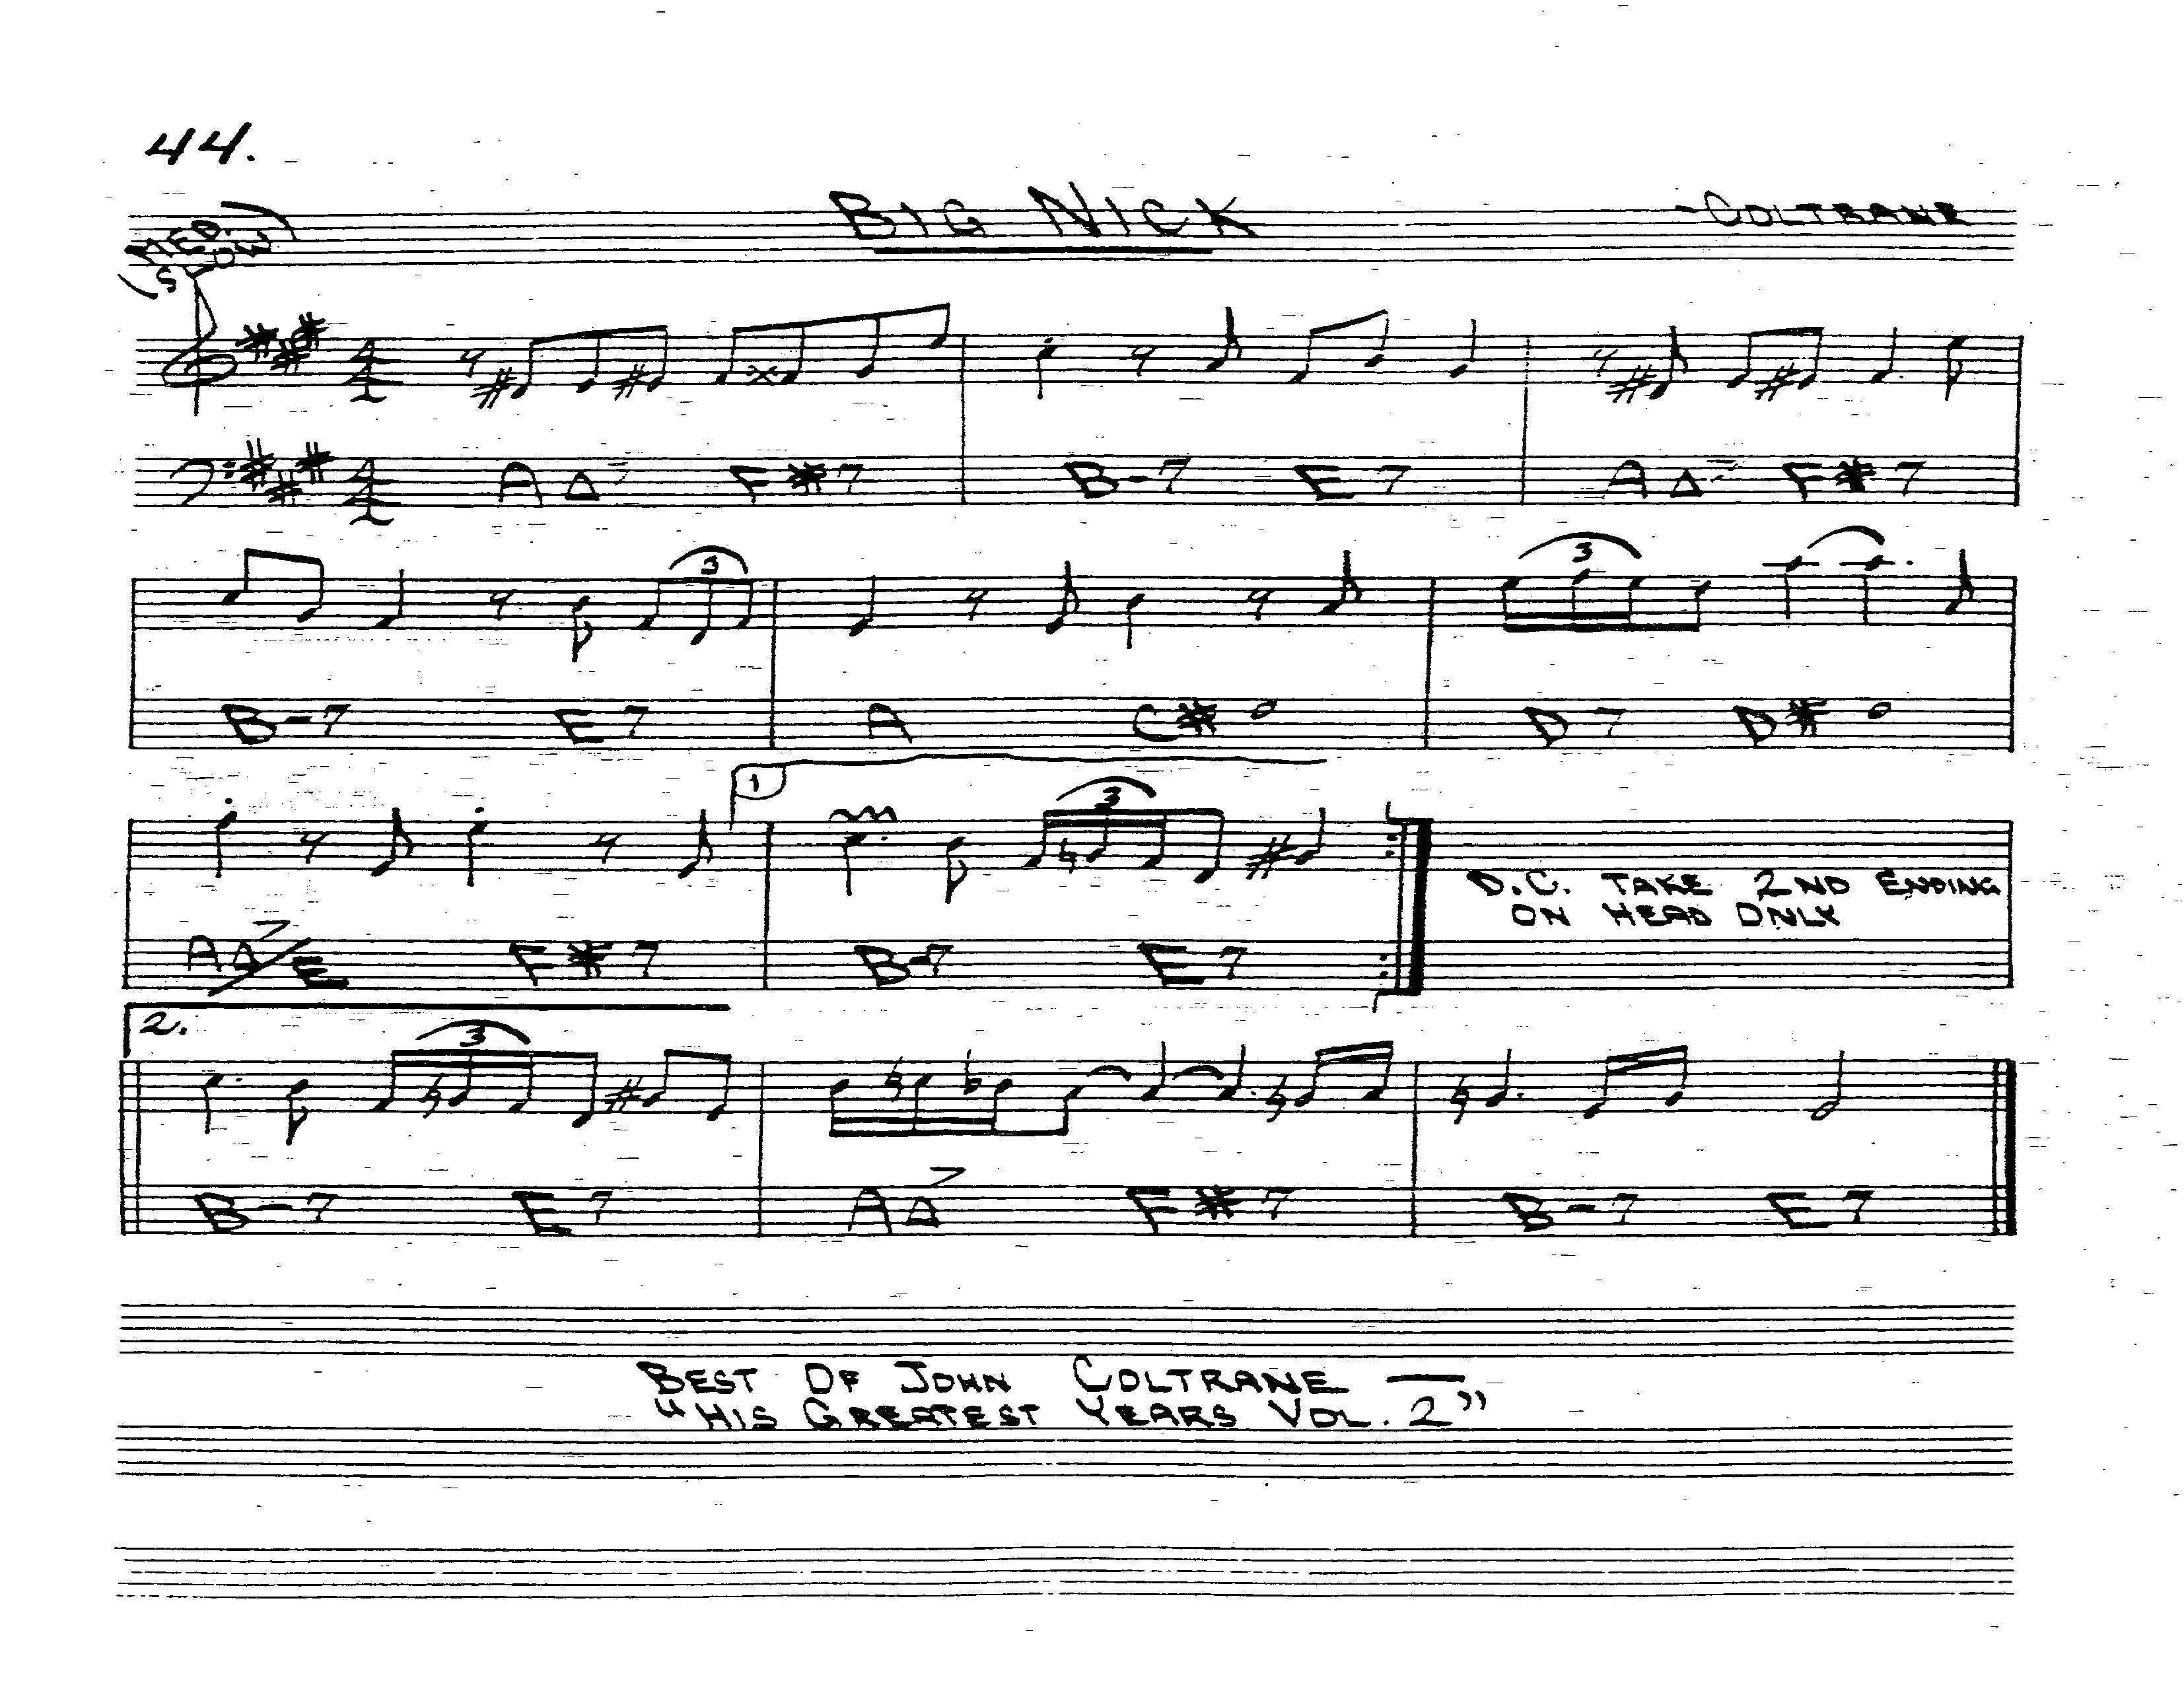 44.
(MED. SLOW)
BIG NICK
-COLTRANE
4 4
A△7 F#7 B-7 E7 A△7 F#7
4 4
3 3
B-7 E7 A C#° D7 D#°
1
3
D.C. TAKE 2ND ENDING
ON HEAD ONLY
A△7/E F#7 B-7 E7
2.
3
B-7 E7 A△7 F#7 B-7 E7
BEST OF JOHN COLTRANE —
"HIS GREATEST YEARS VOL. 2"